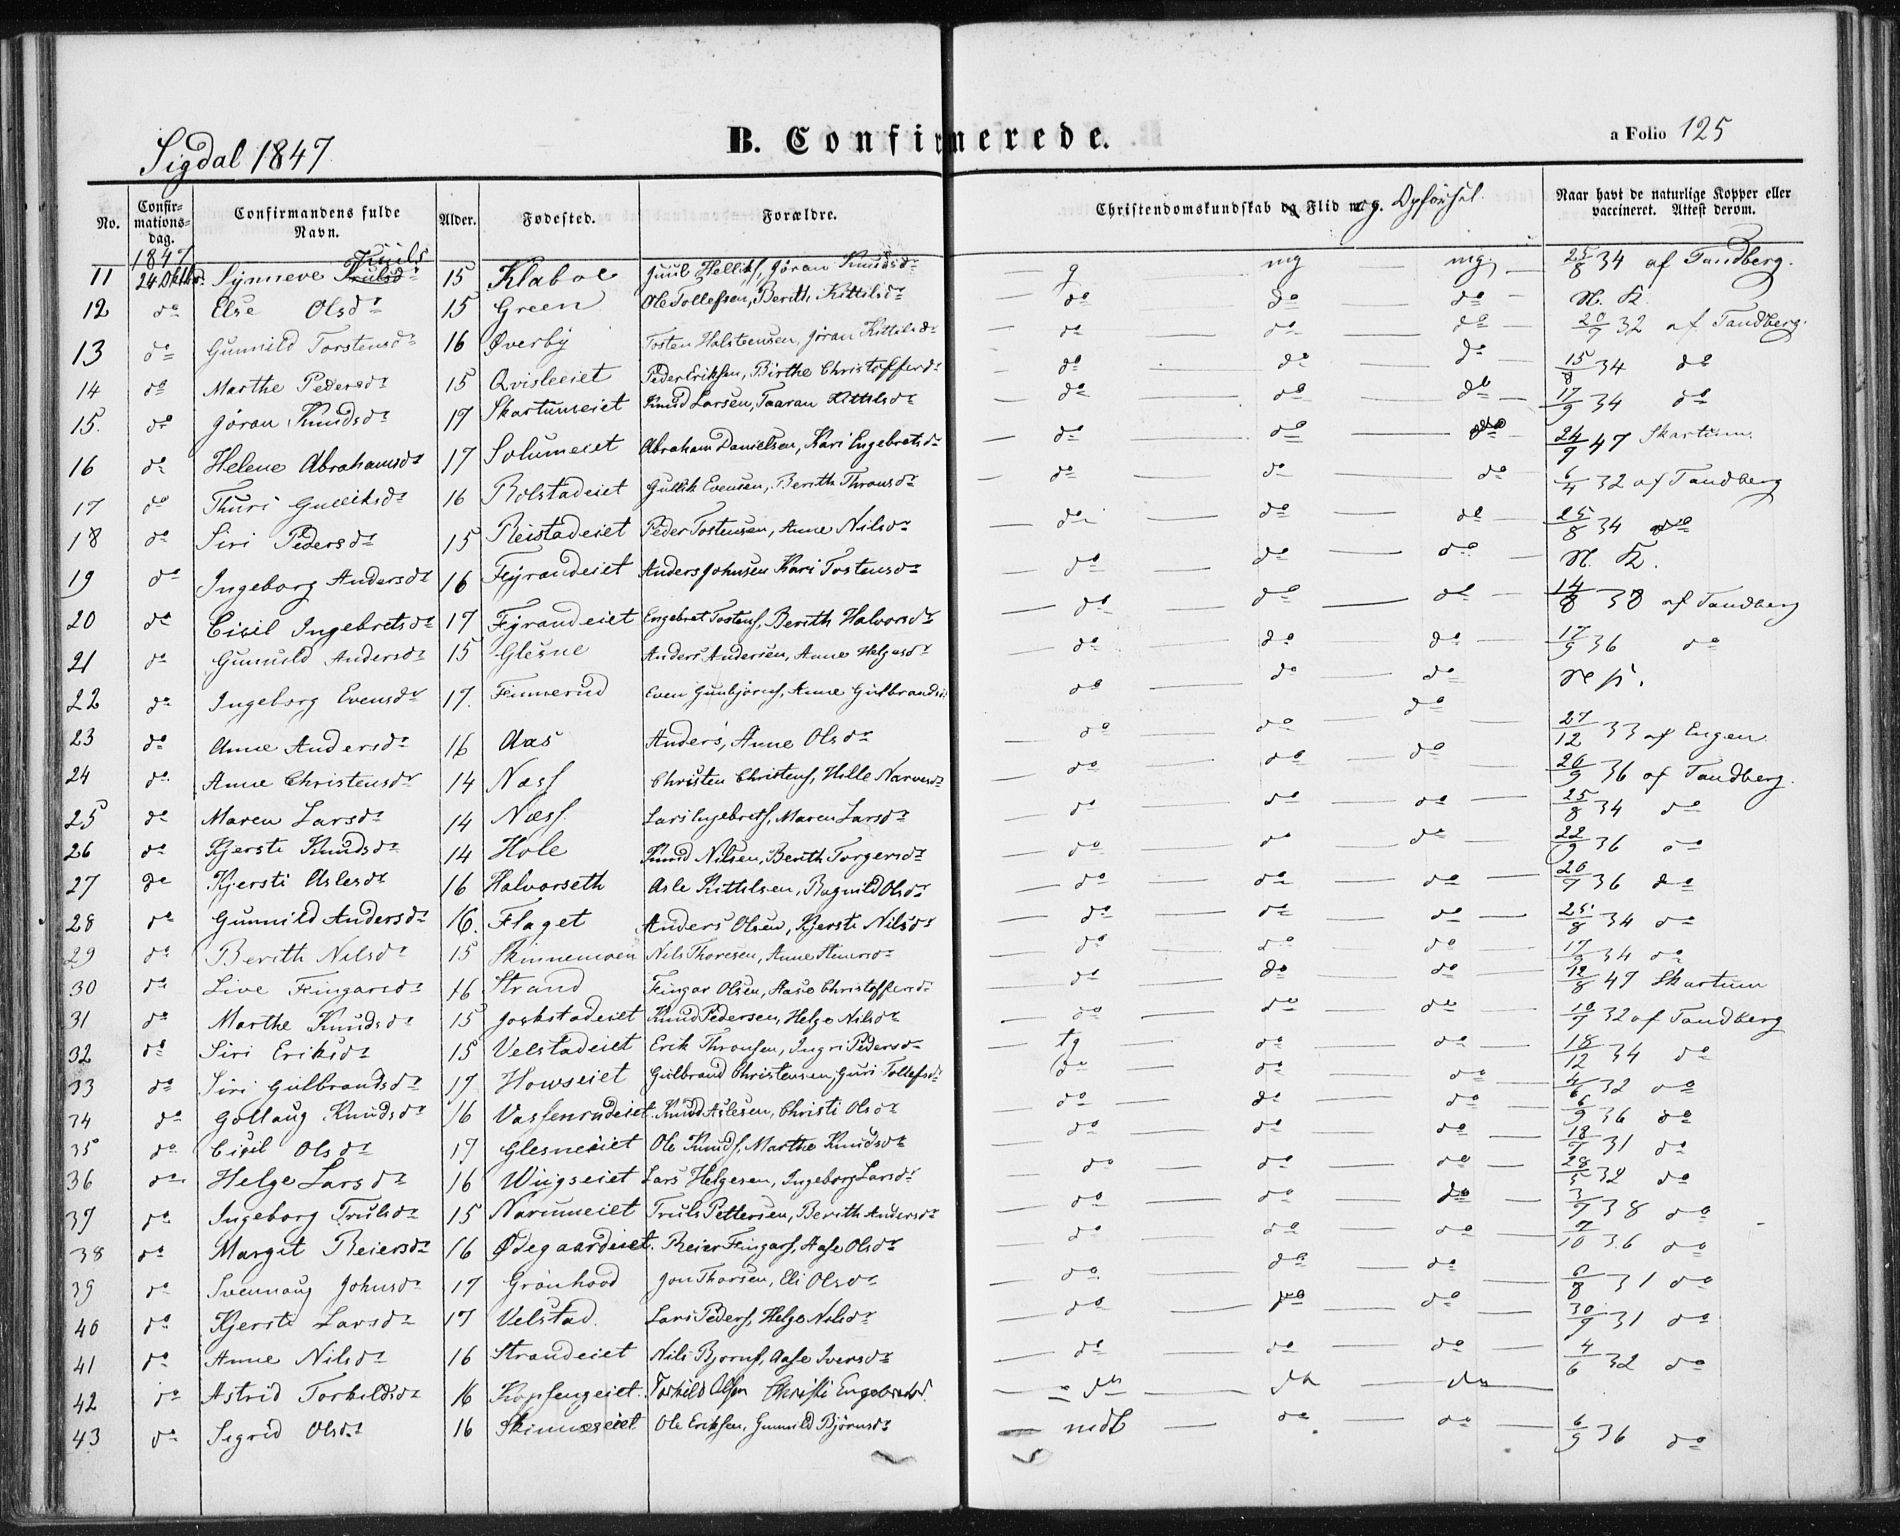 Sigdal 1847.
B. Confirmerede.
a Folio 125
No. Confirmations-dag. Confirmandens fulde Navn. Alder. Fødested. Forældre. Christendomskundskab og Flid m. g. Opførsel. Naar havt de naturlige Kopper eller vaccineret. Attest derom.
1847 Juuls
11 24 Oktbr. Synneve Trulsdr 15 Klaboe Juul Helliks, Jøran Knudsdr g mg mg. 25/8 34 af Tandberg.
12 do Else Olsdr 15 Green Ole Tollefsen, Berith Kittilsdr do do do N. K.
13 do Gunnild Torstensdr 16 Øverby Tosten Halsteensen, Jøran Kittilsdr do do do 20/9 32 af Tandberg.
14 do Marthe Pedersdr 15 Qvisleeiet Peder Eriksen, Birthe Christoffersdr do do do 15/8 34 do
15. do Jøran Knudsdr 17 Skartumeiet Knud Larsen, Taaran Kittilsdr do do do 17/9 34 do
16 do Helene Abrahamsdr 17 Solumeiet Abraham Danielsen, Kari Engebretsdr do do do 24/9 47 Skartum.
17 do Thuri Gulliksdr 16 Rolstadeiet Gullik Evensen, Berith Thronsdr do do do 6/4 32 af Tandberg
18 do Siri Pedersdr 15 Reistadeiet Peder Tostensen, Anne Nilsdr do do do 25/8 34 do
19 do Ingeborg Andersdr 16 Fyrandeiet Anders Johnsen Kari Tostensdr do do do N. K.
20 do Cicil Ingebretsdr 17 Fyrandeiet Engebret Tostens, Berith Halvorsdr do do do 14/8 38 af Tandberg
21 do Gunnild Andersdr 15 Glesne Anders Andersen, Anne Helgesdr do do do 17/9 36 do
22 do Ingeborg Evensdr 17. Finnerud Even Gunbjørns, Anne Gulbrandsdr do do do N. K.
23 do Anne Andersdr 16 Aas Anders, Anne Olsdr do do do 27/12 33 af Engen
24 do Anne Christensdr 14 Næss Christen Christens, Hille Narvesdr do do do 20/9 36 af Tandberg.
25 do Maren Larsdr 14 Næss. Lars Ingebrets, Maren Larsdr do do do 25/8 34 do
26 do Kjersti Knudsdr 14 Hole Knud Nilsen, Berith Torgersdr do do do 22/9 36 do
27 do Kjersti Aslesdr 16 Halvorseth Asle Kittilsen, Ragnild Olsdr do do do 20/9 36 do
28 do Gunnild Andersdr 16. Flaget Anders Olsen, Kjersti Nilsdr do do do 25/8 34 do
29 do Berith Nilsdr 15 Skinnemoen Nils Thoresen, Anne do do do 17/9 34 do
30 do Live Fingarsdr 16 Strand Fingar Olsen, Aase Christoffersdr do do do 12/8 47 Skartum
31 do Marthe Knudsdr 15 Jokstadeiet Knud Pedersen, Helge Nilsdr do do do 10/9 32 af Tandberg
32 do Siri Eriksdr 15 Velstadeiet Erik Thronsen, Ingri Pedersdr tg do do 18/12 34 do
33 do Siri Gulbrandsdr 17 Howseiet Gulbrand Christensen, Guri Tollefsdr do do do 4/6 32 do
34 do Gollaug Knudsdr 16 Vassenrudeiet. Knud Aslesen, Christi Olsdr do do do 6/9 36 do
35 do Cicil Olsdr 17 Glesneeiet Ole Knuds, Marthe Knudsdr do do do 18/9 31 do
36 do Helge Larsdr 16 Wiigseiet Lars Helgesen, Ingeborg Larsdr do do do 28/5 32 do
37 do Ingeborg Trulsdr 15 Narumeiet Truls Pettersen, Berith Andersdr do do do 3/9 38 do
38 do Margit Reiersdr 16 Ødegaardeiet. Reier Fingars, Aase Olsdr do do do 7/10 36 do
39 do Svennaug Johnsdr 17 Grønhood Jon Thorsen, Eli Olsdr do do do 6/8 31 do
40 do Kjersti Larsdr 17 Velstad. Lars Peders, Helge Nilsdr do do do 30/9 31 do
41 do Anne Nilsdr 16 Strandeiet Nils Bjørns, Aase Iversdr do do do 4/6 32 do
42 do Astrid Torkildsdr 16 Kopsengeiet. Torkild Olsen Christi Engebretsd. do do do
43 do Sigrid Olsdr 16 Skinneseiet Ole Eriksen, Gunnild Bjørnsdr mdl do do 6/9 36 do